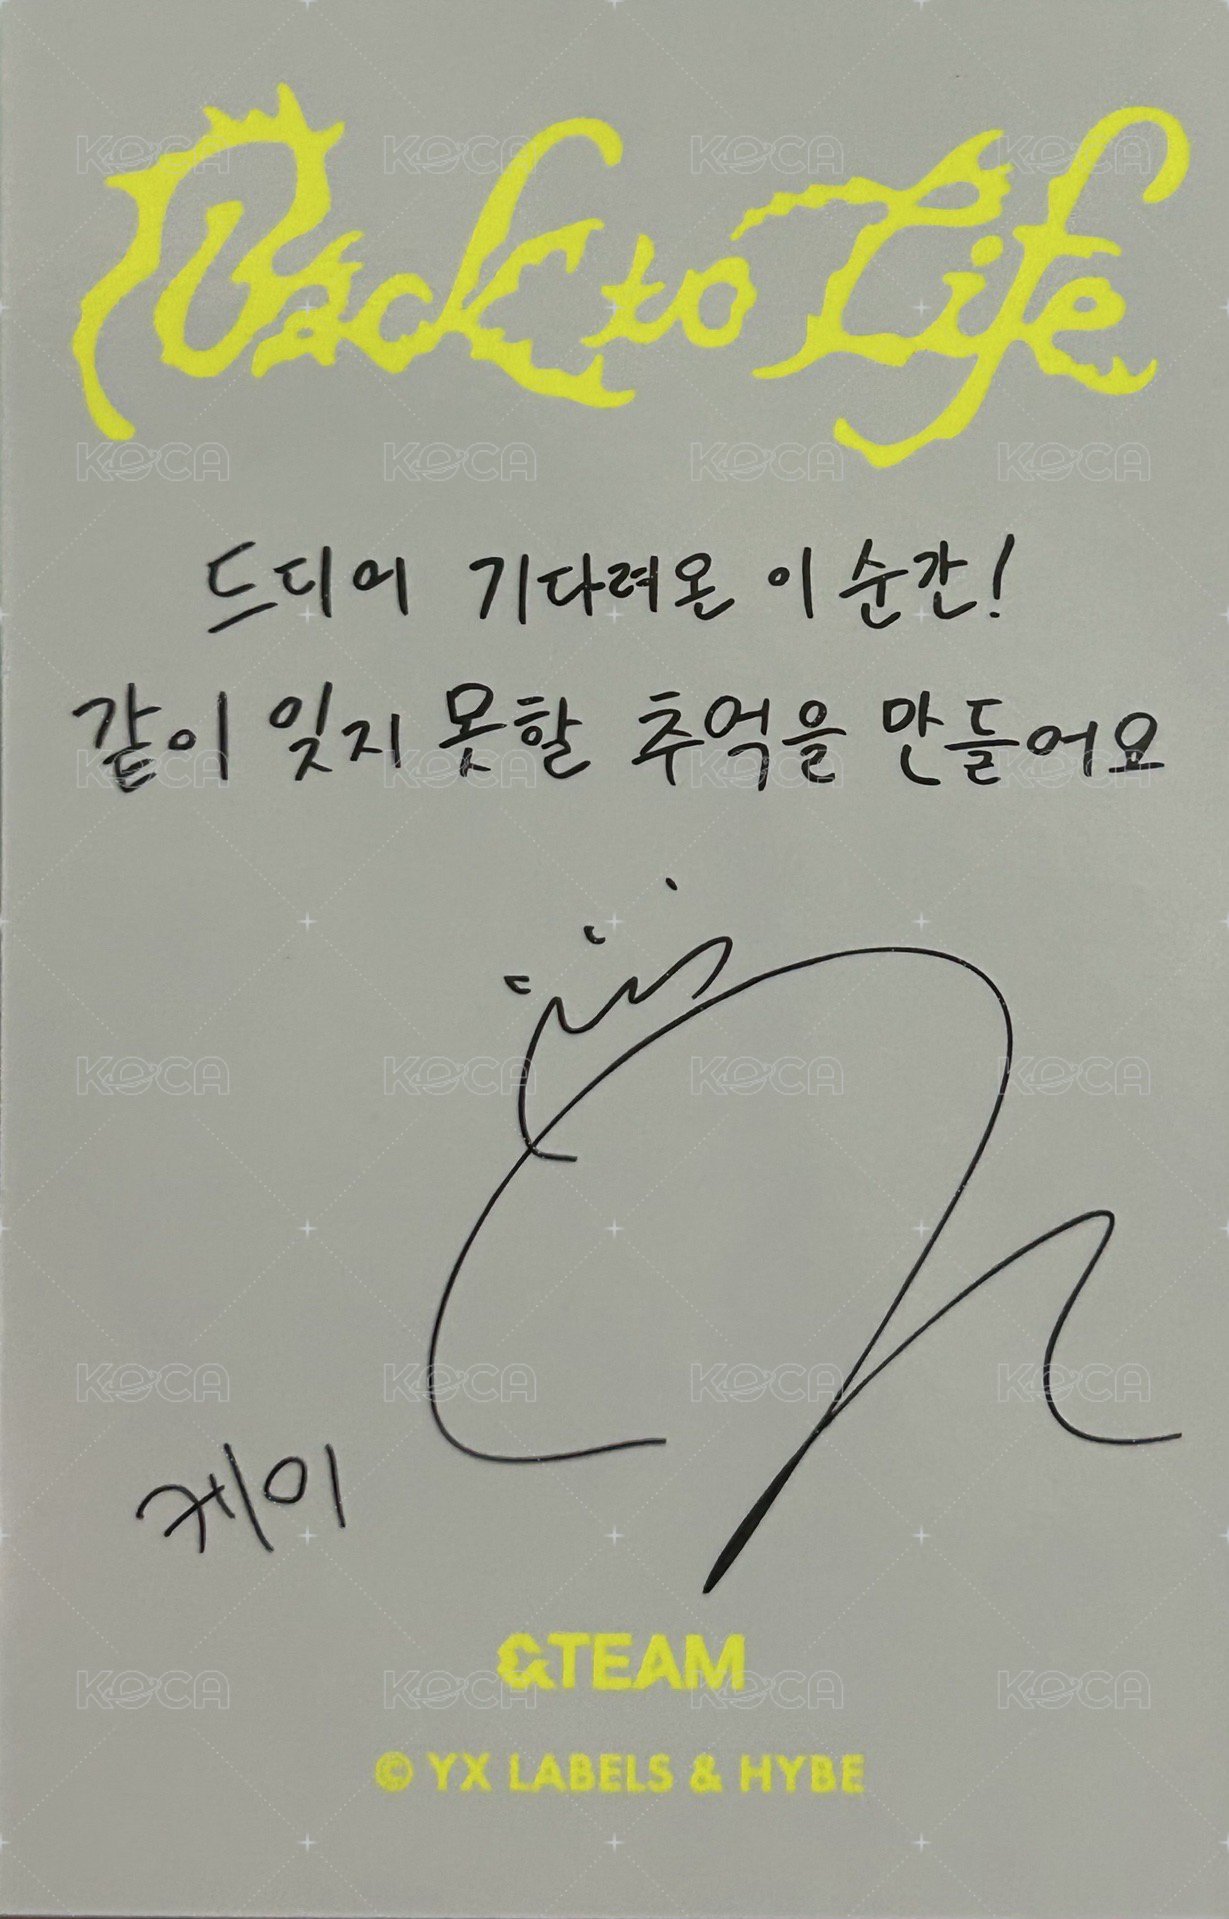 Back to Life
드디어 기다려온 이 순간!
같이 잊지 못할 추억을 만들어요
케이
&TEAM
© YX LABELS & HYBE
KOCA